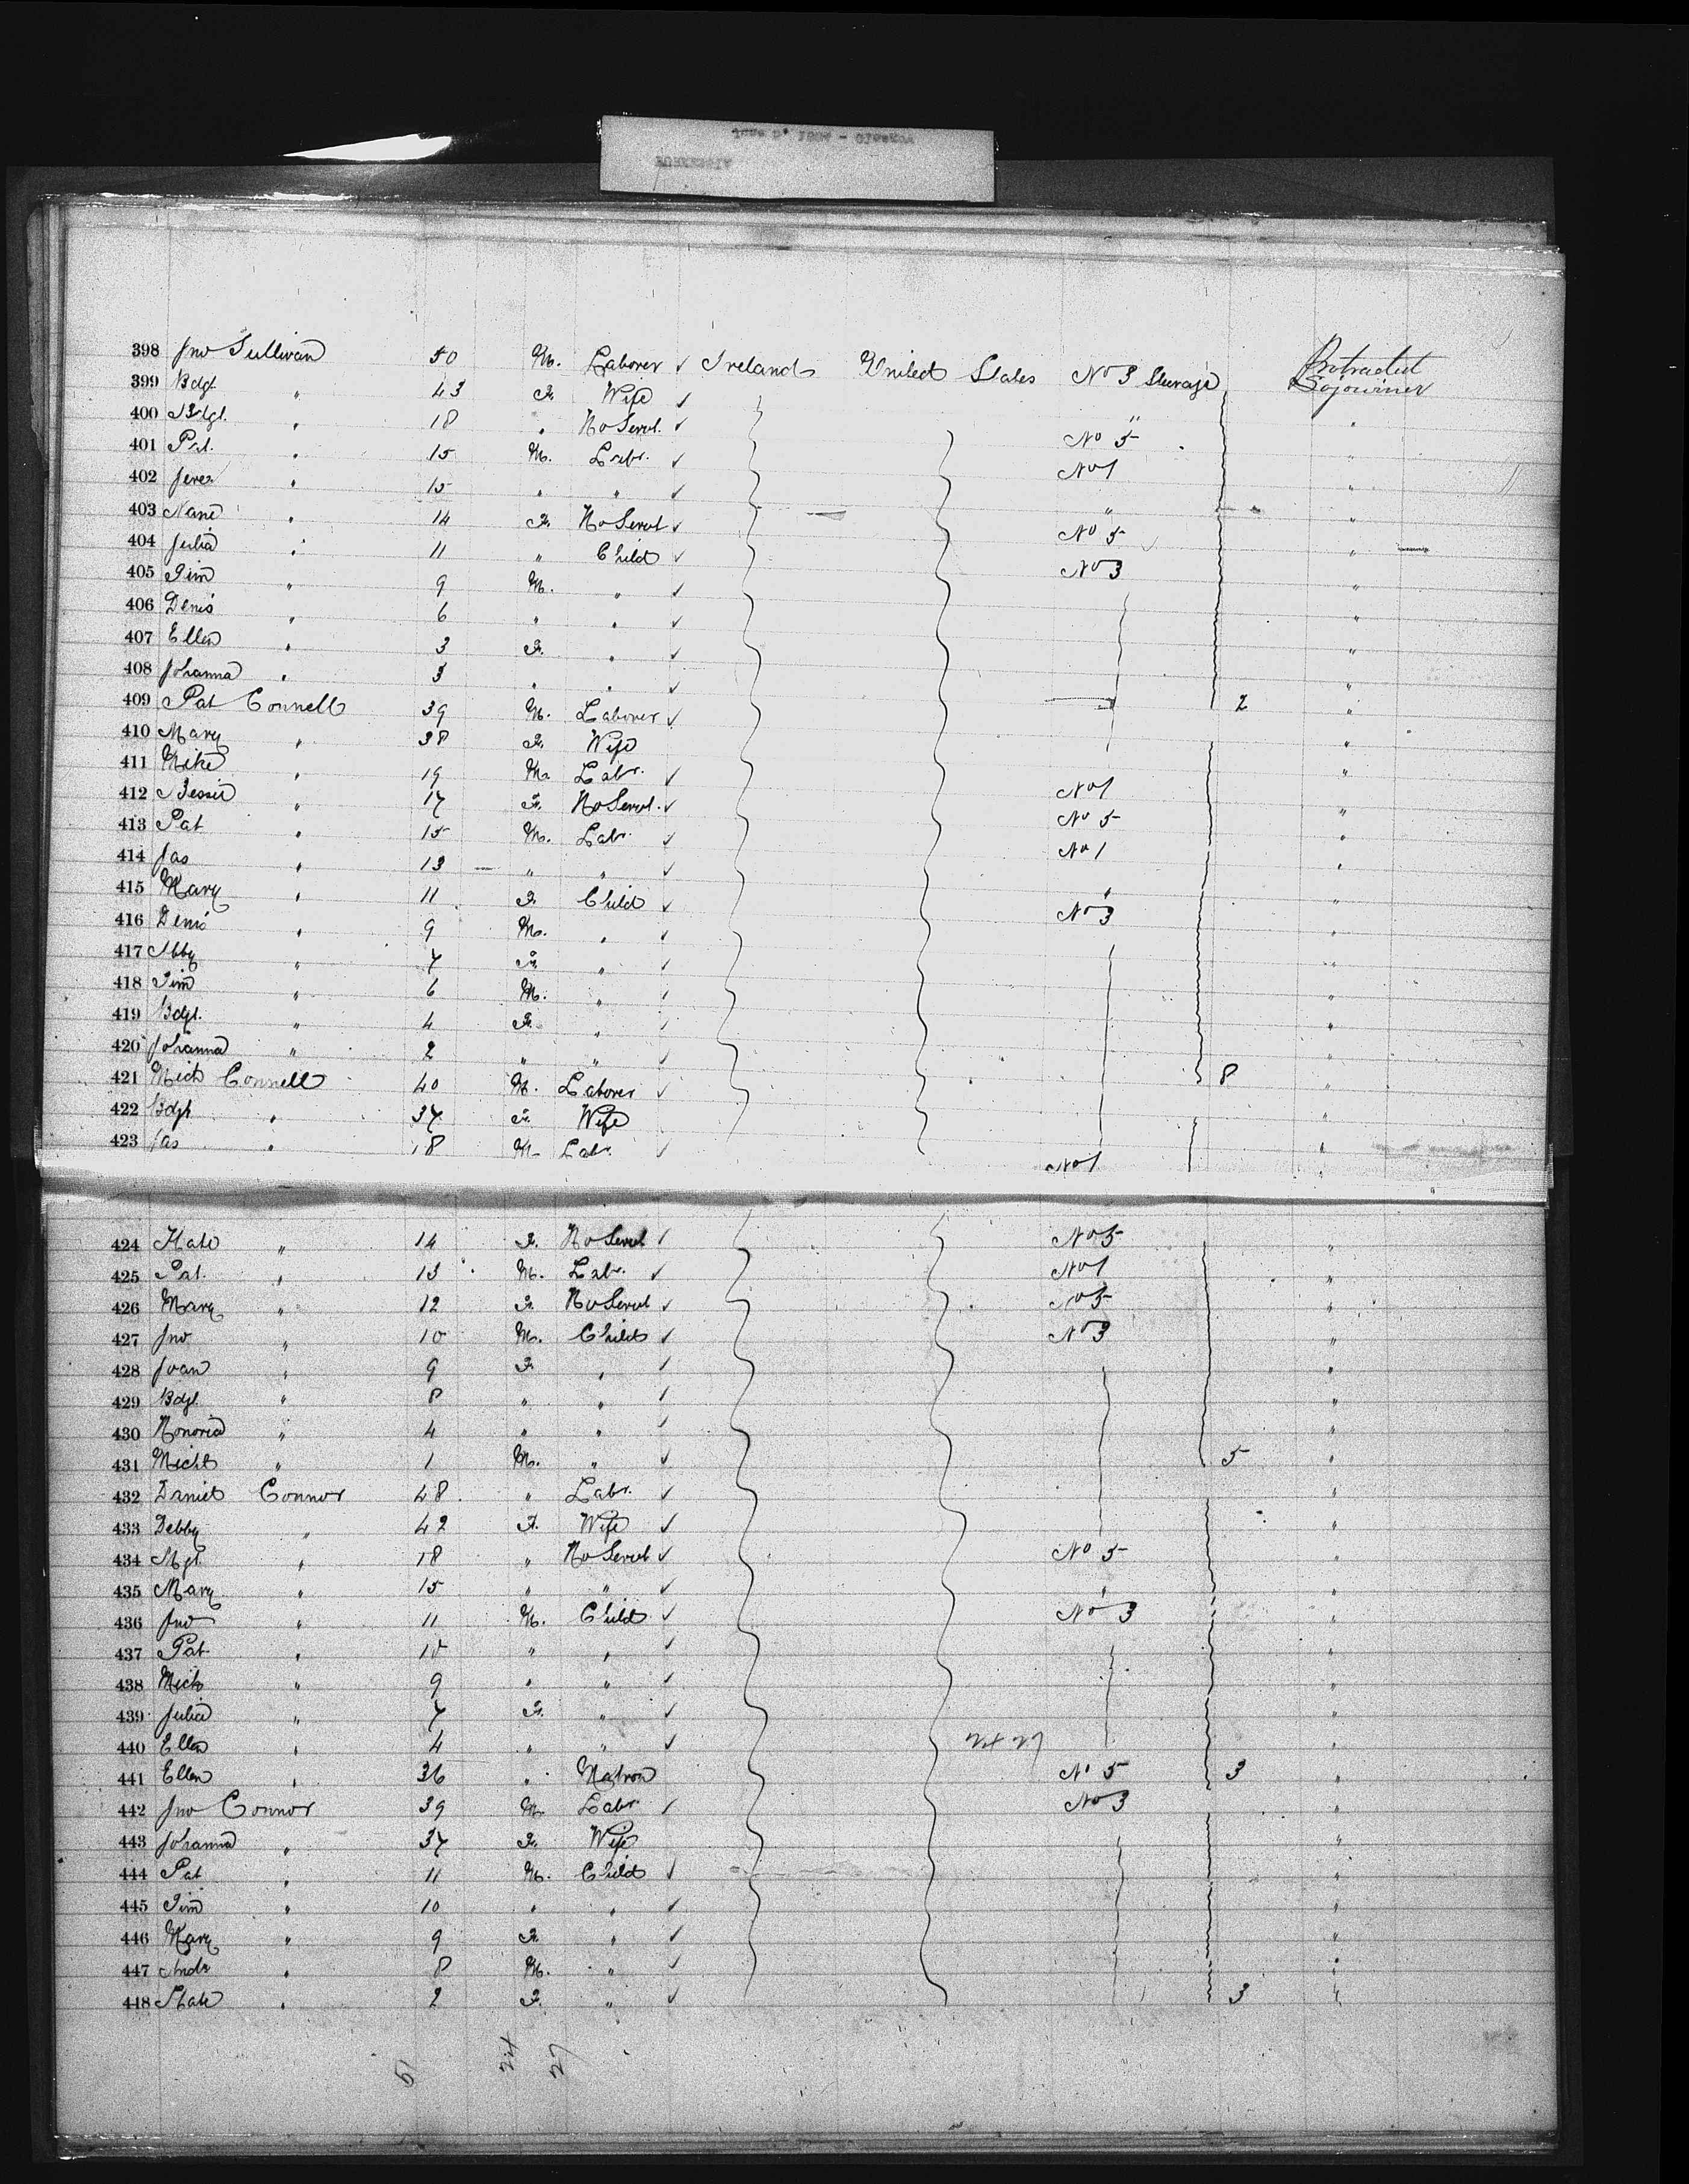 398 Jno Sullivan 50 M. Laborer ✓ Ireland United States No 3 Steerage Protracted Sojourner
399 Bdgt. " 43 F. Wife ✓ " "
400 Bdgt. " 18 " Ho Servt. ✓ No 5 "
401 Pat. " 15 M. Labr. ✓ No 1 "
402 Jere. " 15 " " ✓ " "
403 Nane " 14 F. Ho Servt ✓ No 5 "
404 Julia " 11 " Child ✓ No 3 "
405 Tim " 9 M. " ✓ "
406 Denis " 6 " " ✓ "
407 Ellen " 3 F. " ✓ "
408 Johanna " 3 " " ✓ 2 "
409 Pat Connell 39 M. Laborer ✓ "
410 Mary " 38 F. Wife "
411 Mike " 19 M. Labr. ✓ No 1 "
412 Bessie " 17 F. Ho Servt. ✓ No 5 "
413 Pat " 15 M. Labr. ✓ No 1 "
414 Jas " 13 " " ✓ " "
415 Mary " 11 F. Child ✓ No 3 "
416 Denis " 9 M. " ✓ "
417 Abby " 7 F. " ✓ "
418 Tim " 6 M. " ✓ "
419 Bdgt. " 4 F. " ✓ "
420 Johanna " 2 " " ✓ 8 "
421 Mich Connell 40 M. Laborer ✓ "
422 Bdgt " 37 F. Wife "
423 Jas " 18 M. Labr. ✓ No 1 "
424 Kate " 14 F. Ho Servt ✓ No 5 "
425 Pat. " 13 M. Labr. ✓ No 1 "
426 Mary " 12 F. Ho Servt ✓ No 5 "
427 Jno " 10 M. Child ✓ No 3 "
428 Joan " 9 F. " ✓ "
429 Bdgt. " 8 " " ✓ "
430 Honoria " 4 " " ✓ "
431 Michl " 1 M. " ✓ 5 "
432 Daniel Connor 48 " Labr. ✓ "
433 Debby " 42 F. Wife ✓ "
434 Mgt. " 18 " Ho Servt ✓ No 5 "
435 Mary " 15 " " ✓ " "
436 Jno " 11 M. Child ✓ No 3 "
437 Pat " 10 " " ✓ "
438 Mich " 9 " " ✓ "
439 Julia " 7 F. " ✓ "
440 Ellen " 4 " " ✓ 24 27 "
441 Ellen " 36 " Matron No 5 3 "
442 Jno Connor 39 M. Labr. ✓ No 3 "
443 Johanna " 37 F. Wife "
444 Pat " 11 M. Child ✓ "
445 Tim " 10 " " ✓ "
446 Mary " 9 F. " ✓ "
447 Andr " 8 M. " ✓ "
448 Kate " 2 F. " ✓ 3 "
51 24 27